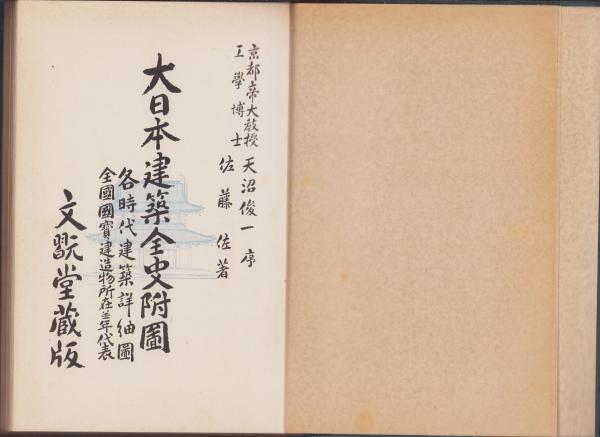 京都帝大教授
工學博士
天沼俊一序
佐藤佐著
大日本建築全史附圖
各時代建築詳細圖
全國國寶建造物所在並年代表
文翫堂蔵版